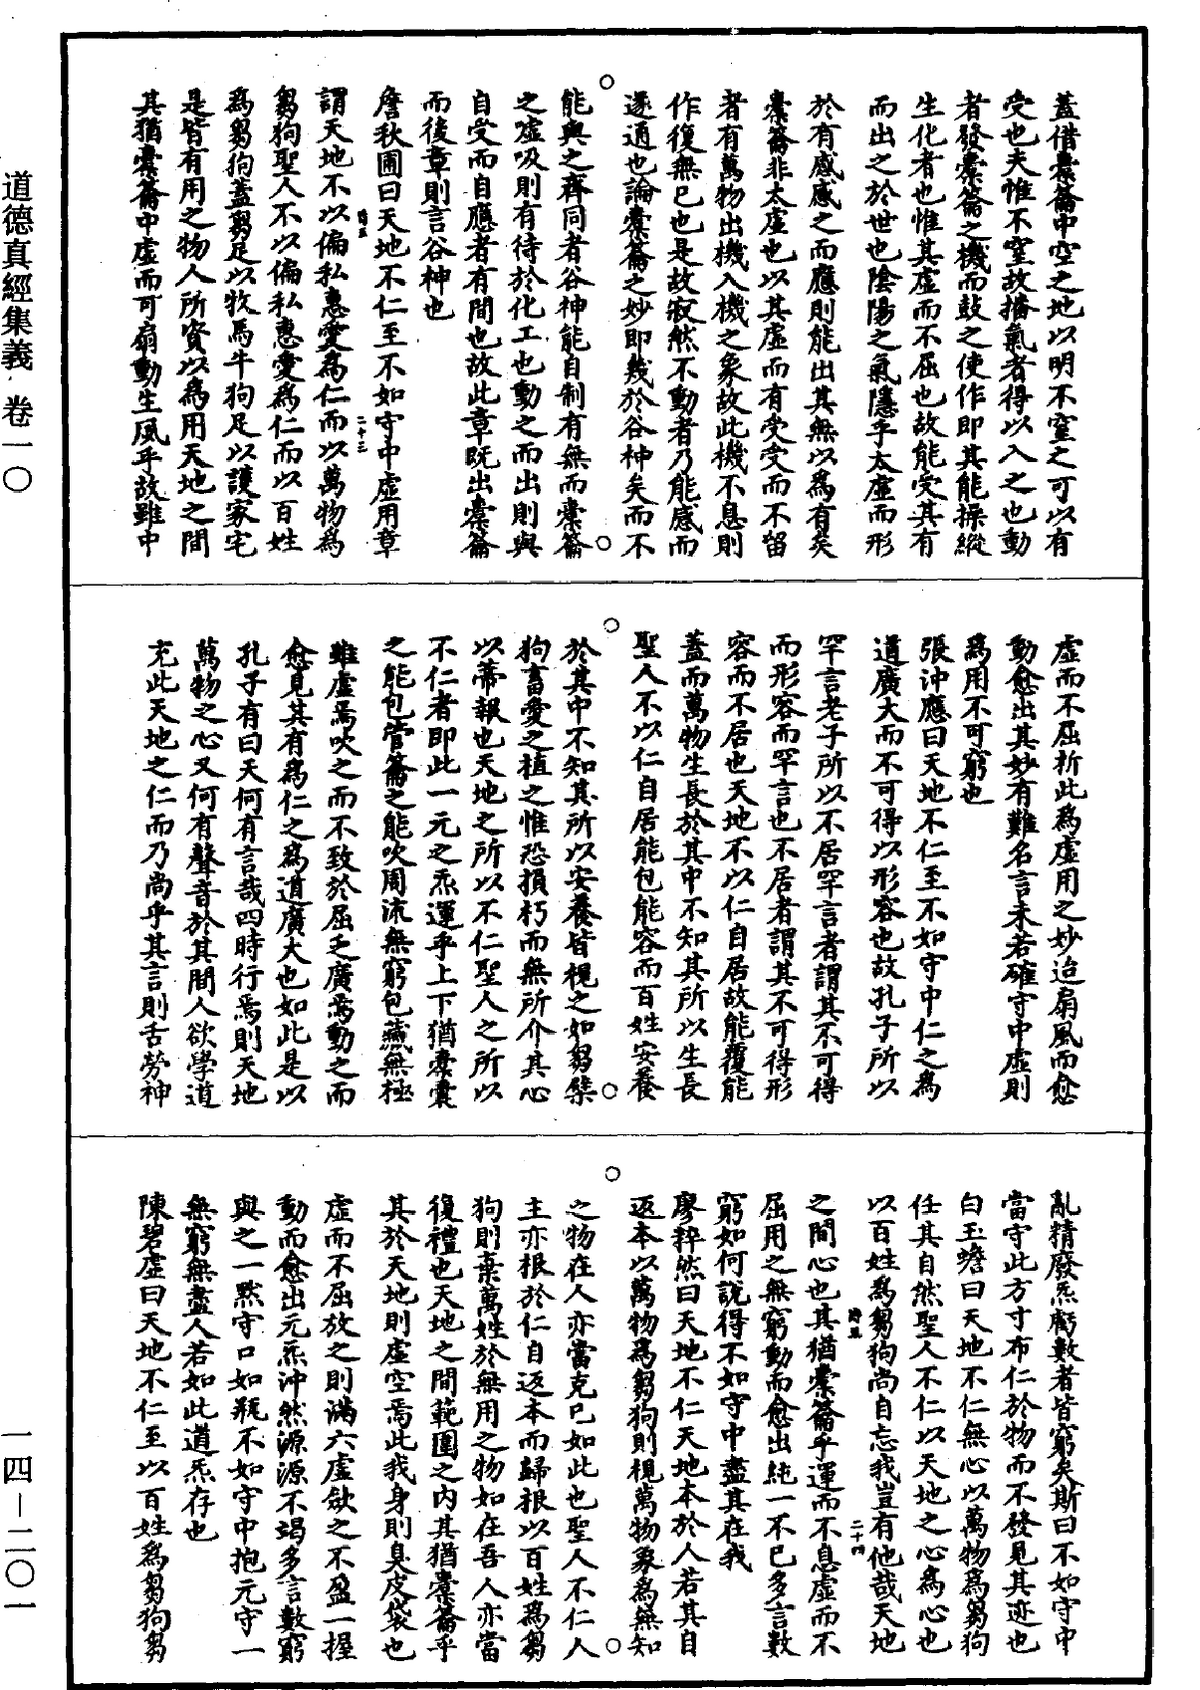 蓋借橐籥中空之地以明不窒之可以有
受也夫惟不窒故播氣者得以入之也動
者發橐籥之機而鼓之使作即其能操縱
生化者也惟其虛而不屈也故能受其有
而出之於世也陰陽之氣隱乎太虛而形
於有感感之而應則能出其無以為有矣
橐籥非太虛也以其虛而有受受而不留
者有萬物出機入機之象故此機不息則
作復無已也是故寂然不動者乃能感而
遂通也論橐籥之妙即幾於谷神矣而不
能與之齊同者谷神能自制有無而橐籥
之噓吸則有待於化工也動之而出則與
自受而自應者有間也故此章既出橐籥
而後章則言谷神也
詹秋圃曰天地不仁至不如守中虛用章
謂天地不以偏私惠愛為仁而以萬物為
芻狗聖人不以偏私惠愛為仁而以百姓
為芻狗蓋芻足以牧馬牛狗足以護家宅
是皆有用之物人所資以為用天地之間
其猶橐籥中虛而可扇動生風乎故雖中
虛而不屈折此為虛用之妙迨扇風而愈
動愈出其妙有難名言未若確守中虛則
為用不可窮也
張沖應曰天地不仁至不如守中仁之為
道廣大而不可得以形容也故孔子所以
罕言老子所以不居罕言者謂其不可得
而形容而罕言也不居者謂其不可得形
容而不居也天地不以仁自居故能覆能
蓋而萬物生長於其中不知其所以生長
聖人不以仁自居能包能容而百姓安養
於其中不知其所以安養皆視之如芻槩
狗畜愛之植之惟恐損朽而無所介其心
以蘄報也天地之所以不仁聖人之所以
不仁者即此一元之炁運乎上下猶橐囊
之能包管籥之能吹周流無窮包藏無極
雖虛焉吹之而不致於屈乏廣焉動之而
愈見其有為仁之為道廣大也如此是以
孔子有曰天何有言哉四時行焉則天地
萬物之心又何有聲音於其間人欲學道
充此天地之仁而乃尚乎其言則舌勞神
亂精廢炁虧數者皆窮矣斯曰不如守中
當守此方寸布仁於物而不發見其迹也
白玉蟾曰天地不仁無心以萬物為芻狗
任其自然聖人不仁以天地之心為心也
以百姓為芻狗尚自忘我豈有他哉天地
之間心也其猶橐籥乎運而不息虛而不
屈用之無窮動而愈出純一不已多言數
窮如何說得不如守中盡其在我
廖粹然曰天地不仁天地本於人若其自
返本以萬物為芻狗則視萬物象為無知
之物在人亦當克己如此也聖人不仁人
主亦根於仁自返本而歸根以百姓為芻
狗則棄萬姓於無用之物如在吾人亦當
復禮也天地之間範圍之內其猶橐籥乎
其於天地則虛空焉此我身則臭皮袋也
虛而不屈放之則滿六虛斂之不盈一握
動而愈出元炁沖然源源不竭多言數窮
與之一默守口如瓶不如守中抱元守一
無窮無盡人若如此道炁存也
陳碧虛曰天地不仁至以百姓為芻狗芻
道德真經集義 卷一〇
一四－二〇一